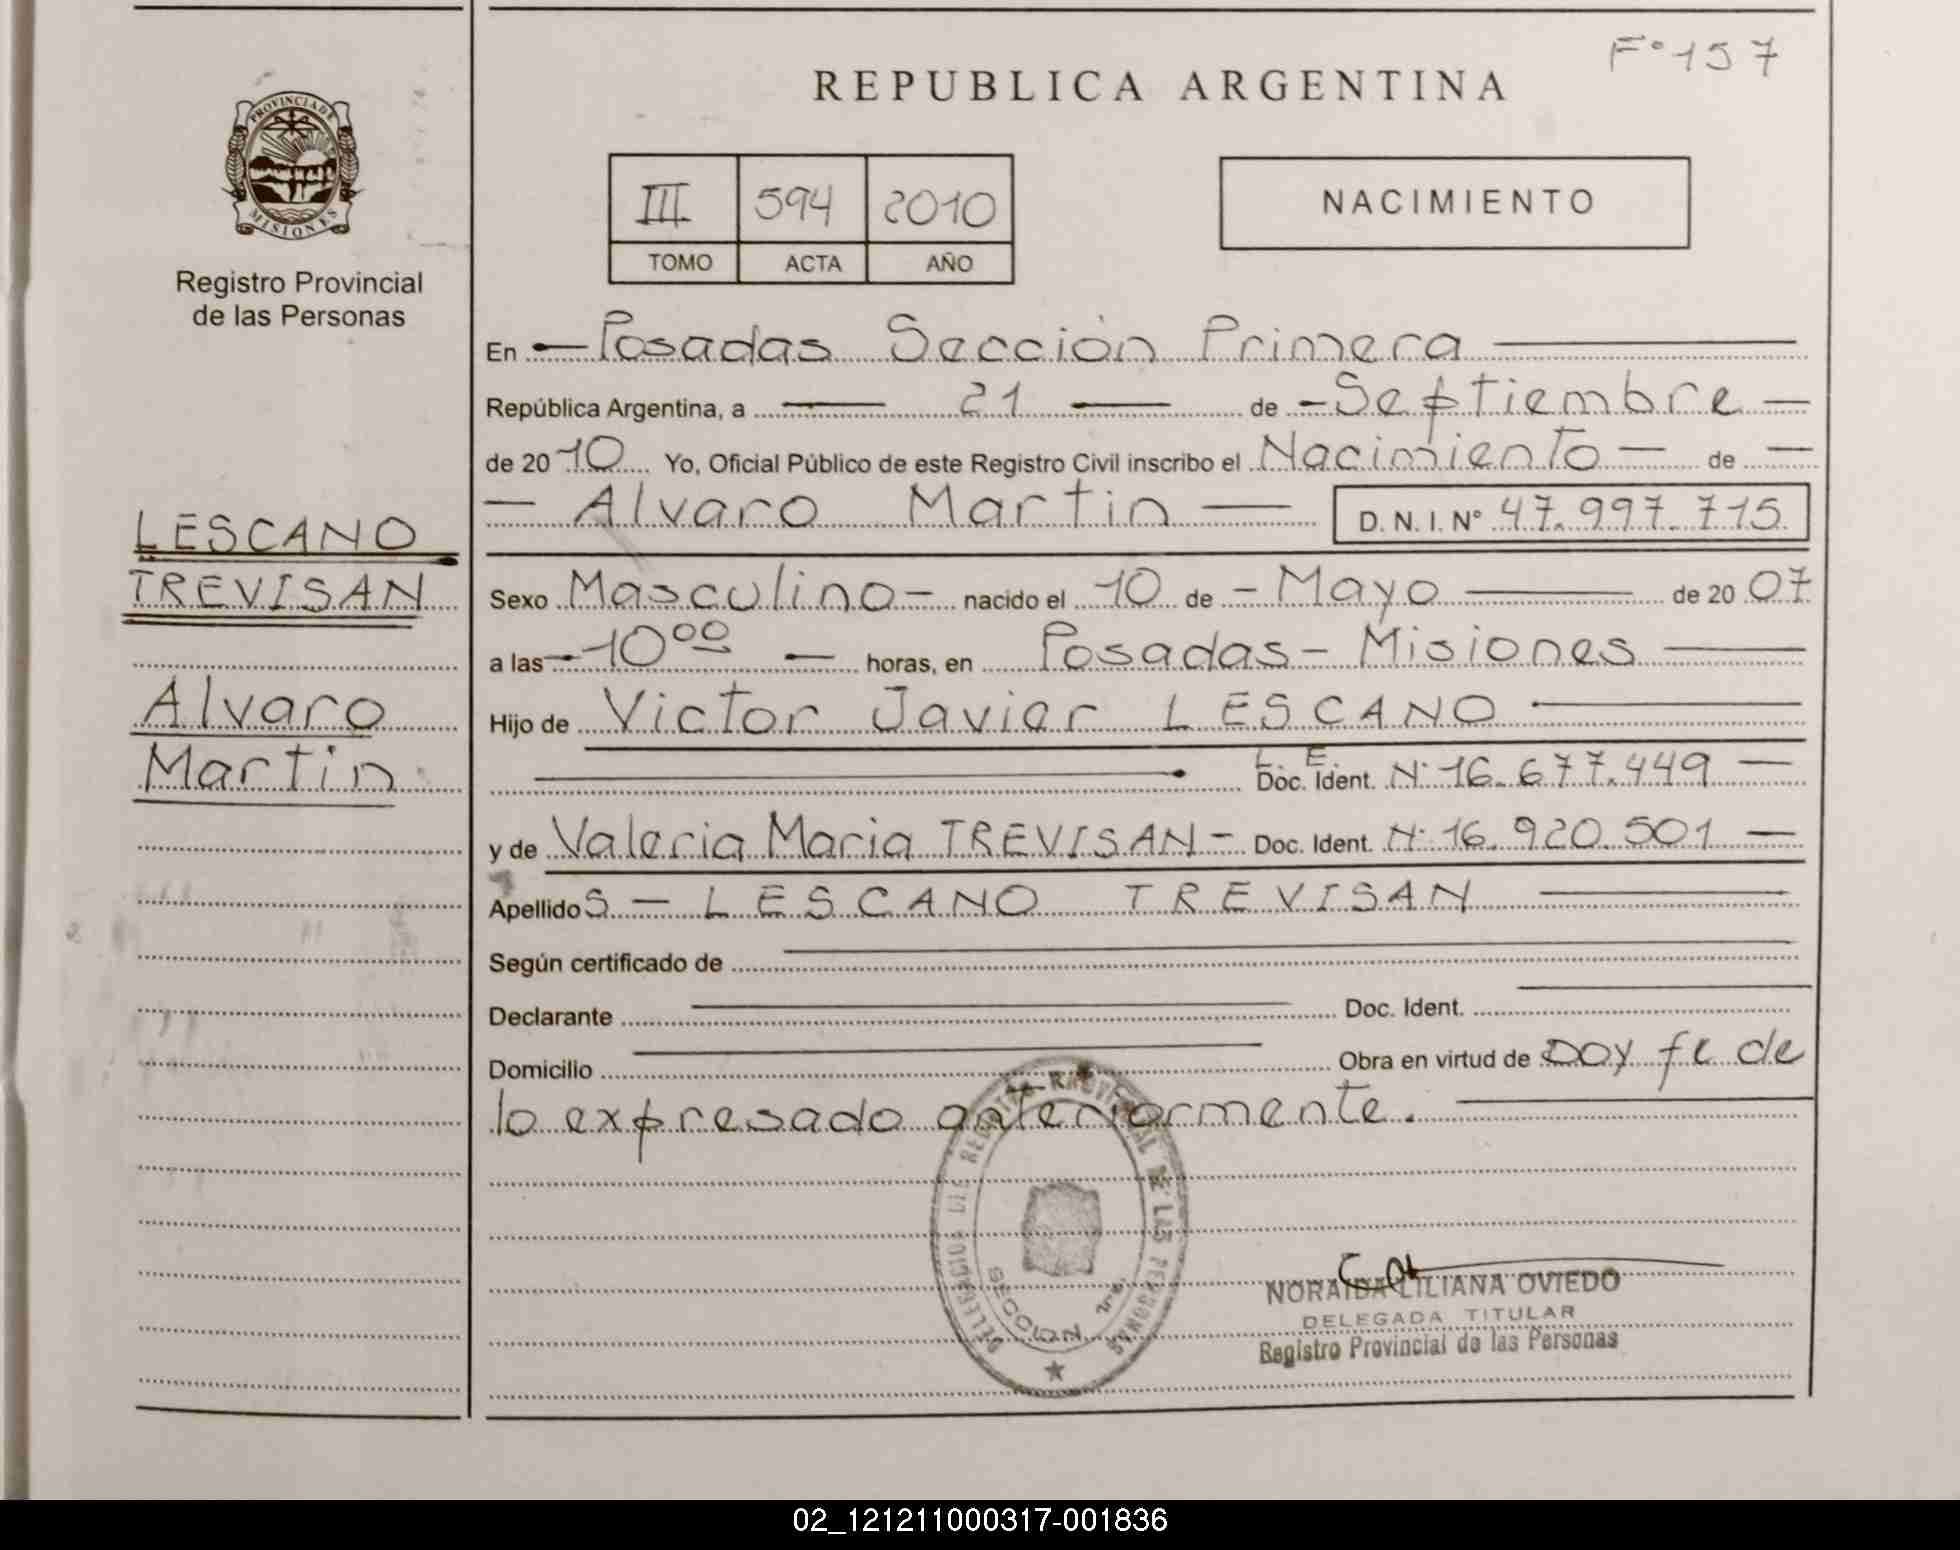 F° 157
REPUBLICA ARGENTINA
PROVINCIA DE
MISIONES
III 594 2010
TOMO ACTA AÑO
NACIMIENTO
Registro Provincial
de las Personas
En Posadas Sección Primera
República Argentina, a 21 de Septiembre
de 2010 Yo, Oficial Público de este Registro Civil inscribo el Nacimiento de
Alvaro Martin D.N.I. N° 47.997.715
LESCANO
TREVISAN
Alvaro
Martin
Sexo Masculino nacido el 10 de Mayo de 2007
a las 10 00 horas, en Posadas - Misiones
Hijo de Victor Javier LESCANO
L. E.
Doc. Ident. N° 16.677.449
y de Valeria Maria TREVISAN - Doc. Ident. N° 16.920.501
Apellidos - LESCANO TREVISAN
Según certificado de
Declarante Doc. Ident.
Domicilio Obra en virtud de Doy fe de
lo expresado anteriormente.
DELEGACION DEL REGISTRO PROVINCIAL DE LAS PERSONAS
SECCION 1ra.
NORAIDA LILIANA OVIEDO
DELEGADA TITULAR
Registro Provincial de las Personas
02_121211000317-001836